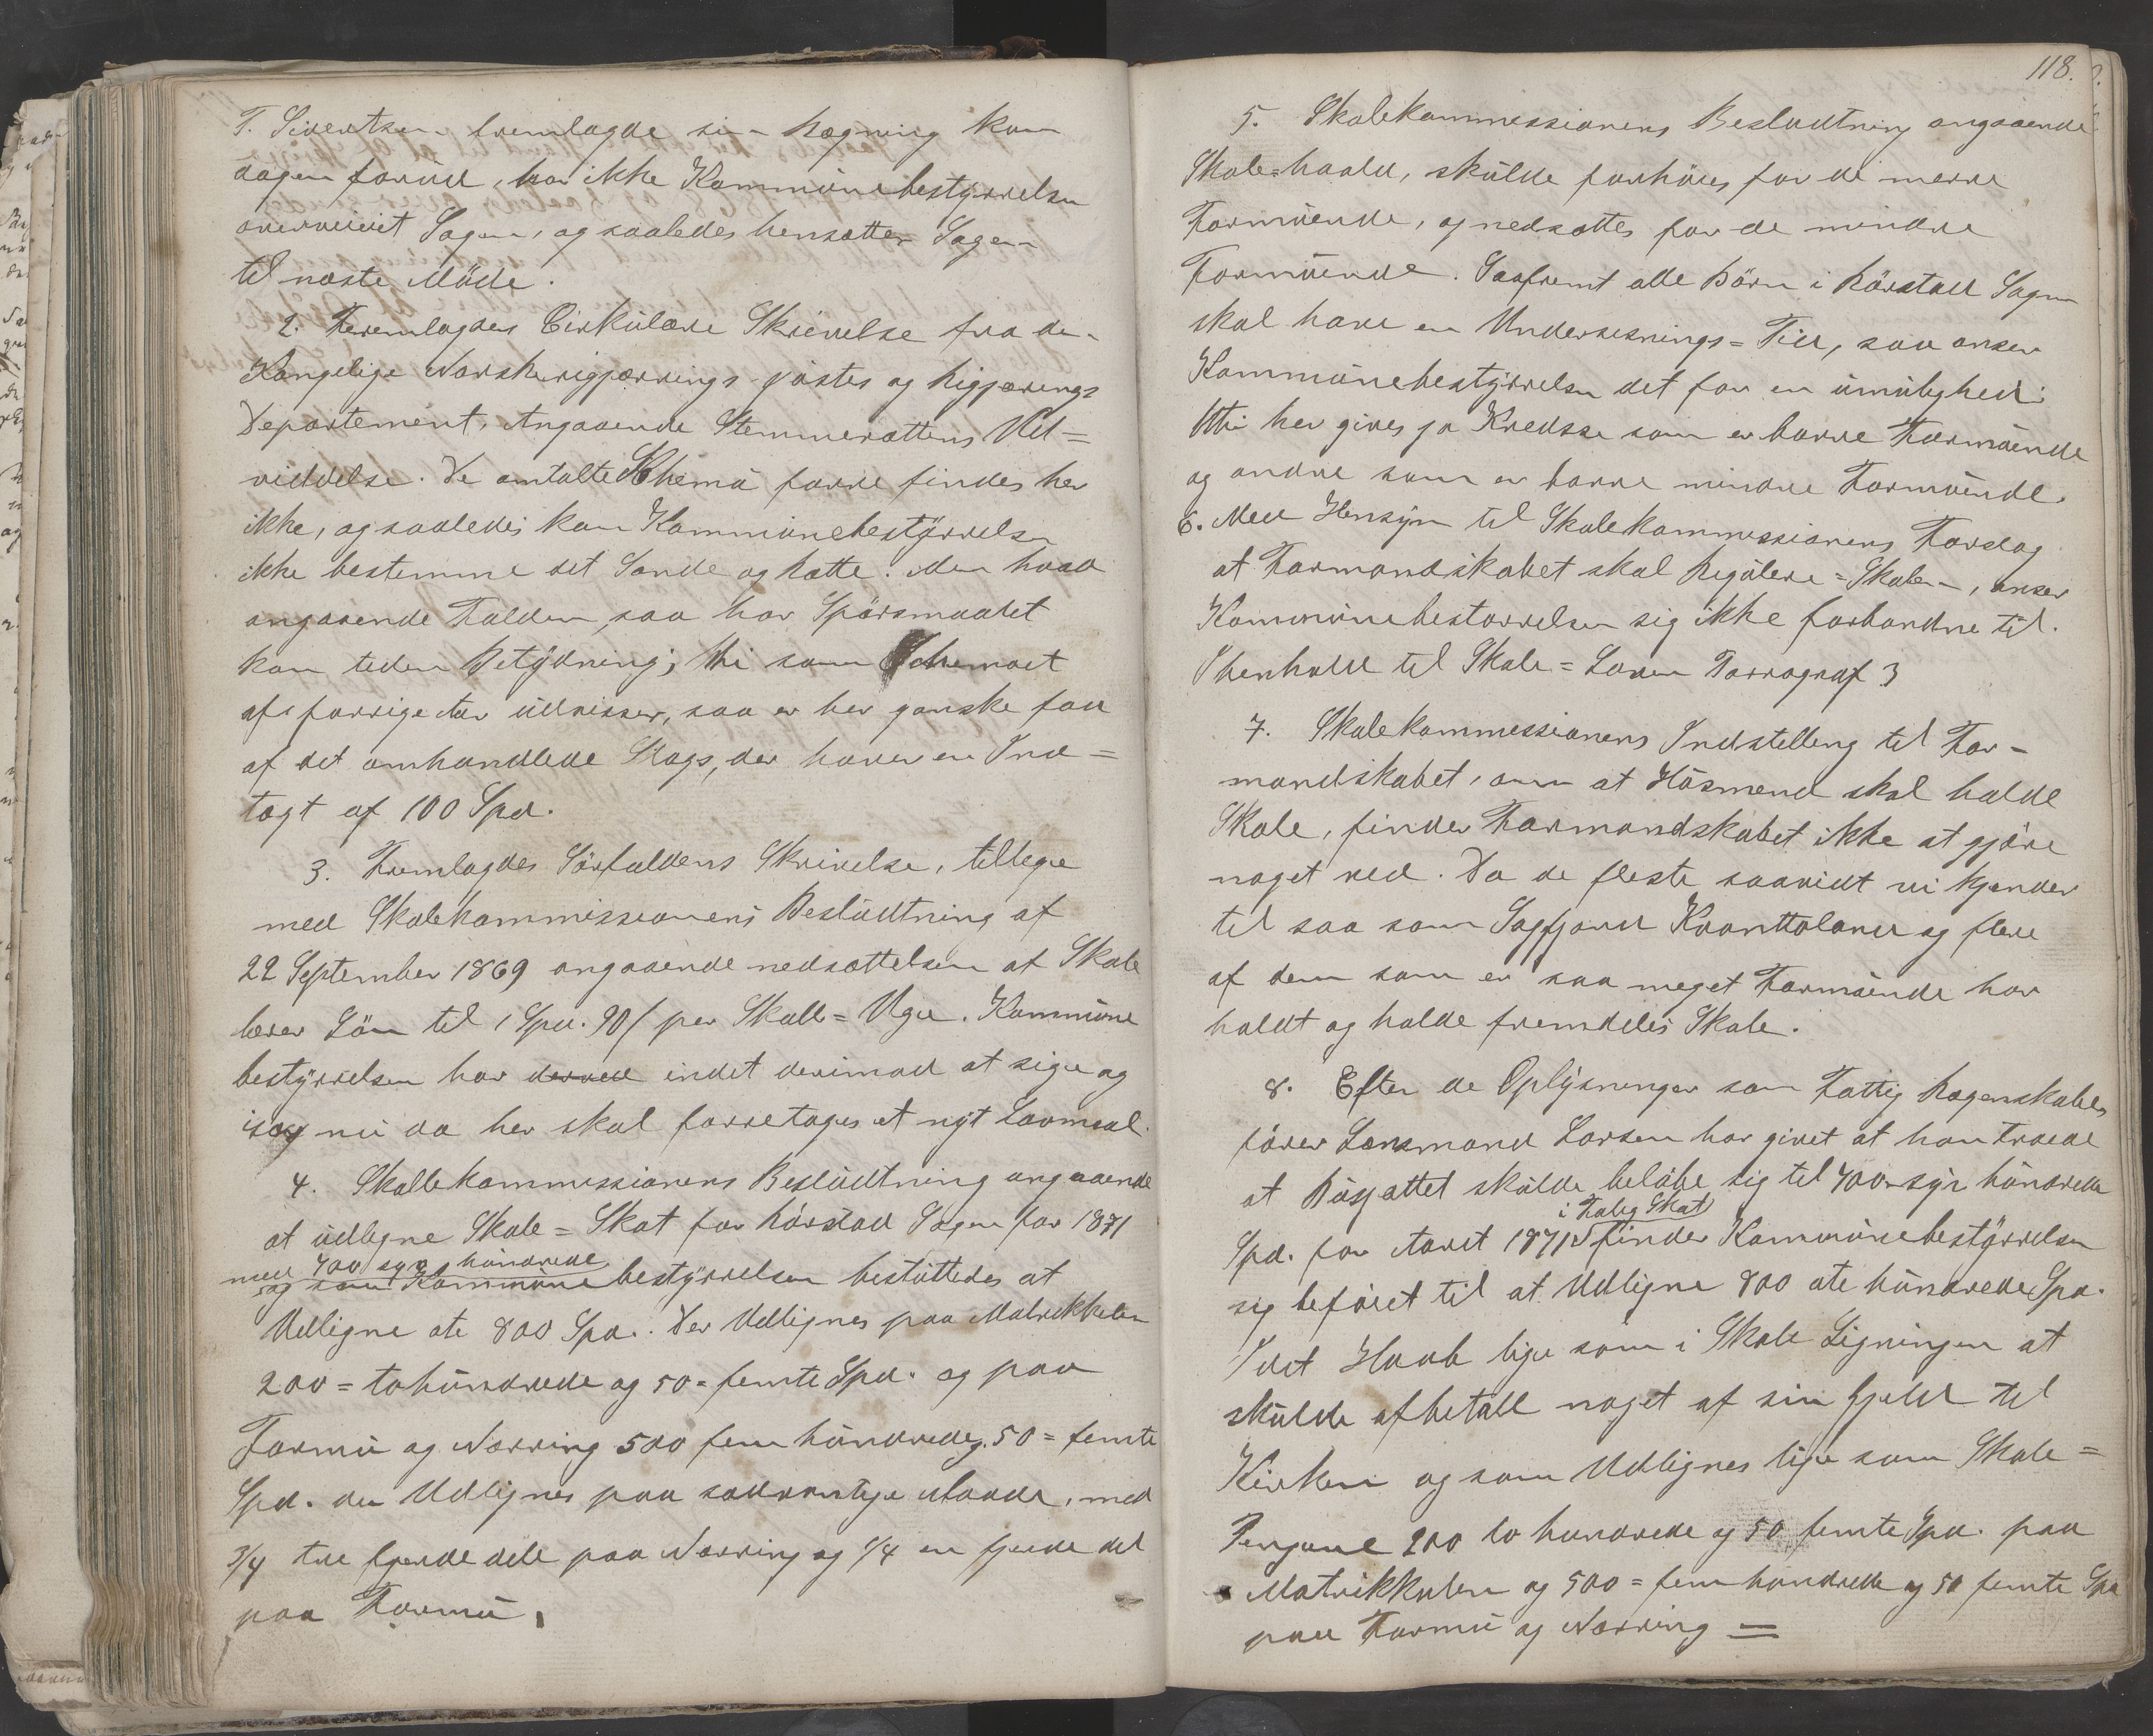 T. Sivertsen fremlagde sin Rægning kun
dagen forud, har ikke Kommunebestyrrelsen
overveiet Sagen, og saaledes hensætter Sagen
til næste Møde.
2. Fremlagdes Cirkulære Skrivelse fra den
Kongelige Norskerigjærrings jostes og Rigjærings
Departement, Angaaende Stemmerættens Ud=
viddelse. De omtalte Skhema forre findes her
ikke, og saaledes kan Kommunebestyrrelsen
ikke bestemme det Sande og Rætte. Men hvad
angaaende Talden, saa har Spørsmaalet
kun liden Betydning; thi som Schemaet
afs forrige Aar udvisser, saa er her ganske faa
af det omhandlede Slags, der haver en Ind=
tægt af 100 Spd.
3. Fremlagdes Sørfoldens Skrivelse, tillige
med Skolekommissionens Besludtning af
22 September 1869 angaaende nedsættelsen af Skole
lærer Løn til 1 Spd. 90/ per Skoll= Uge. Kommune
bestyrrelsen har derved indet derimod at sige og
især nu da her skal forretages et nyt Lovmaal.
4. Skollekommissionens Besludtning angaaende
at udligne Skole= Skat for Rørstad Sogn for 1871
med 700 syv hundrede
og som Kommunebestyrrelsen besluttedes at
Udligne ote 800 Spd. Der Udlignes paa Matrikkelen
200= tohundrede og 50= femte Spd. og paa
Formu og Nærring 500 fem hundrede og 50= femte
Spd. der Udlignes paa sædvanlige Maade, med
3/4 tre fjerde dele paa Nærring og 1/4 en fjerde del
paa Formu.
118.
5. Skolekommissionens Besludtning angaaende
Skole=haald, skulde forhøies for de merre
Formuende, og nedsættes for de mindre
Formuende. Saafremt alle Børn i Rørstad Sogn
skal have en Undervisnings= Tid, saa anser
Kommunebestyrrelsen det for en umulighed;
thi her gives jo Kredsse som er barre Formuende
og andre som er barre mindre Formuende.
6. Med Hensyn til Skolekommissionens Forslag
at Formandskabet skal Regulere= Skolen, anser
Kommunebestorrelsen sig ikke forbondne til.
I henhold til Skole= Loven Parragraf 3
7. Skolekommessionens Indstelling til For-
mandskabet, om at Husmend skal holde
Skole, finder Formandskabet ikke at gjøre
noget ved. Da de fleste saavidt vi kjender
til saa som Sagfjord Kvanttoland og flere
af dem som er saa meget Formuende har
holdt og holde fremdeles Skole.
8. Efter de Oplysninger som Fattig Rægenskabs
fører Lensmand Larsen har givet at han troede
at Busjættet skulde beløbe sig til 700 syv hundrede
i Fattig Skat
Spd. for Aaret 1871 finder Kommunebestyrrelsen
sig beføiet til at Udligne 800 ote hundrede Spd.
I det Haab lige som i Skole Ligningen at
skulde afbetall noget af sin Gjeld til
Kirken og som Udlignes lige som Skole=
Pengene 200 to hundrede og 50 femte Spd. paa
Matrikkulen og 500= fem hundrede og 50 femte Spd
paa Formu og Nærring =